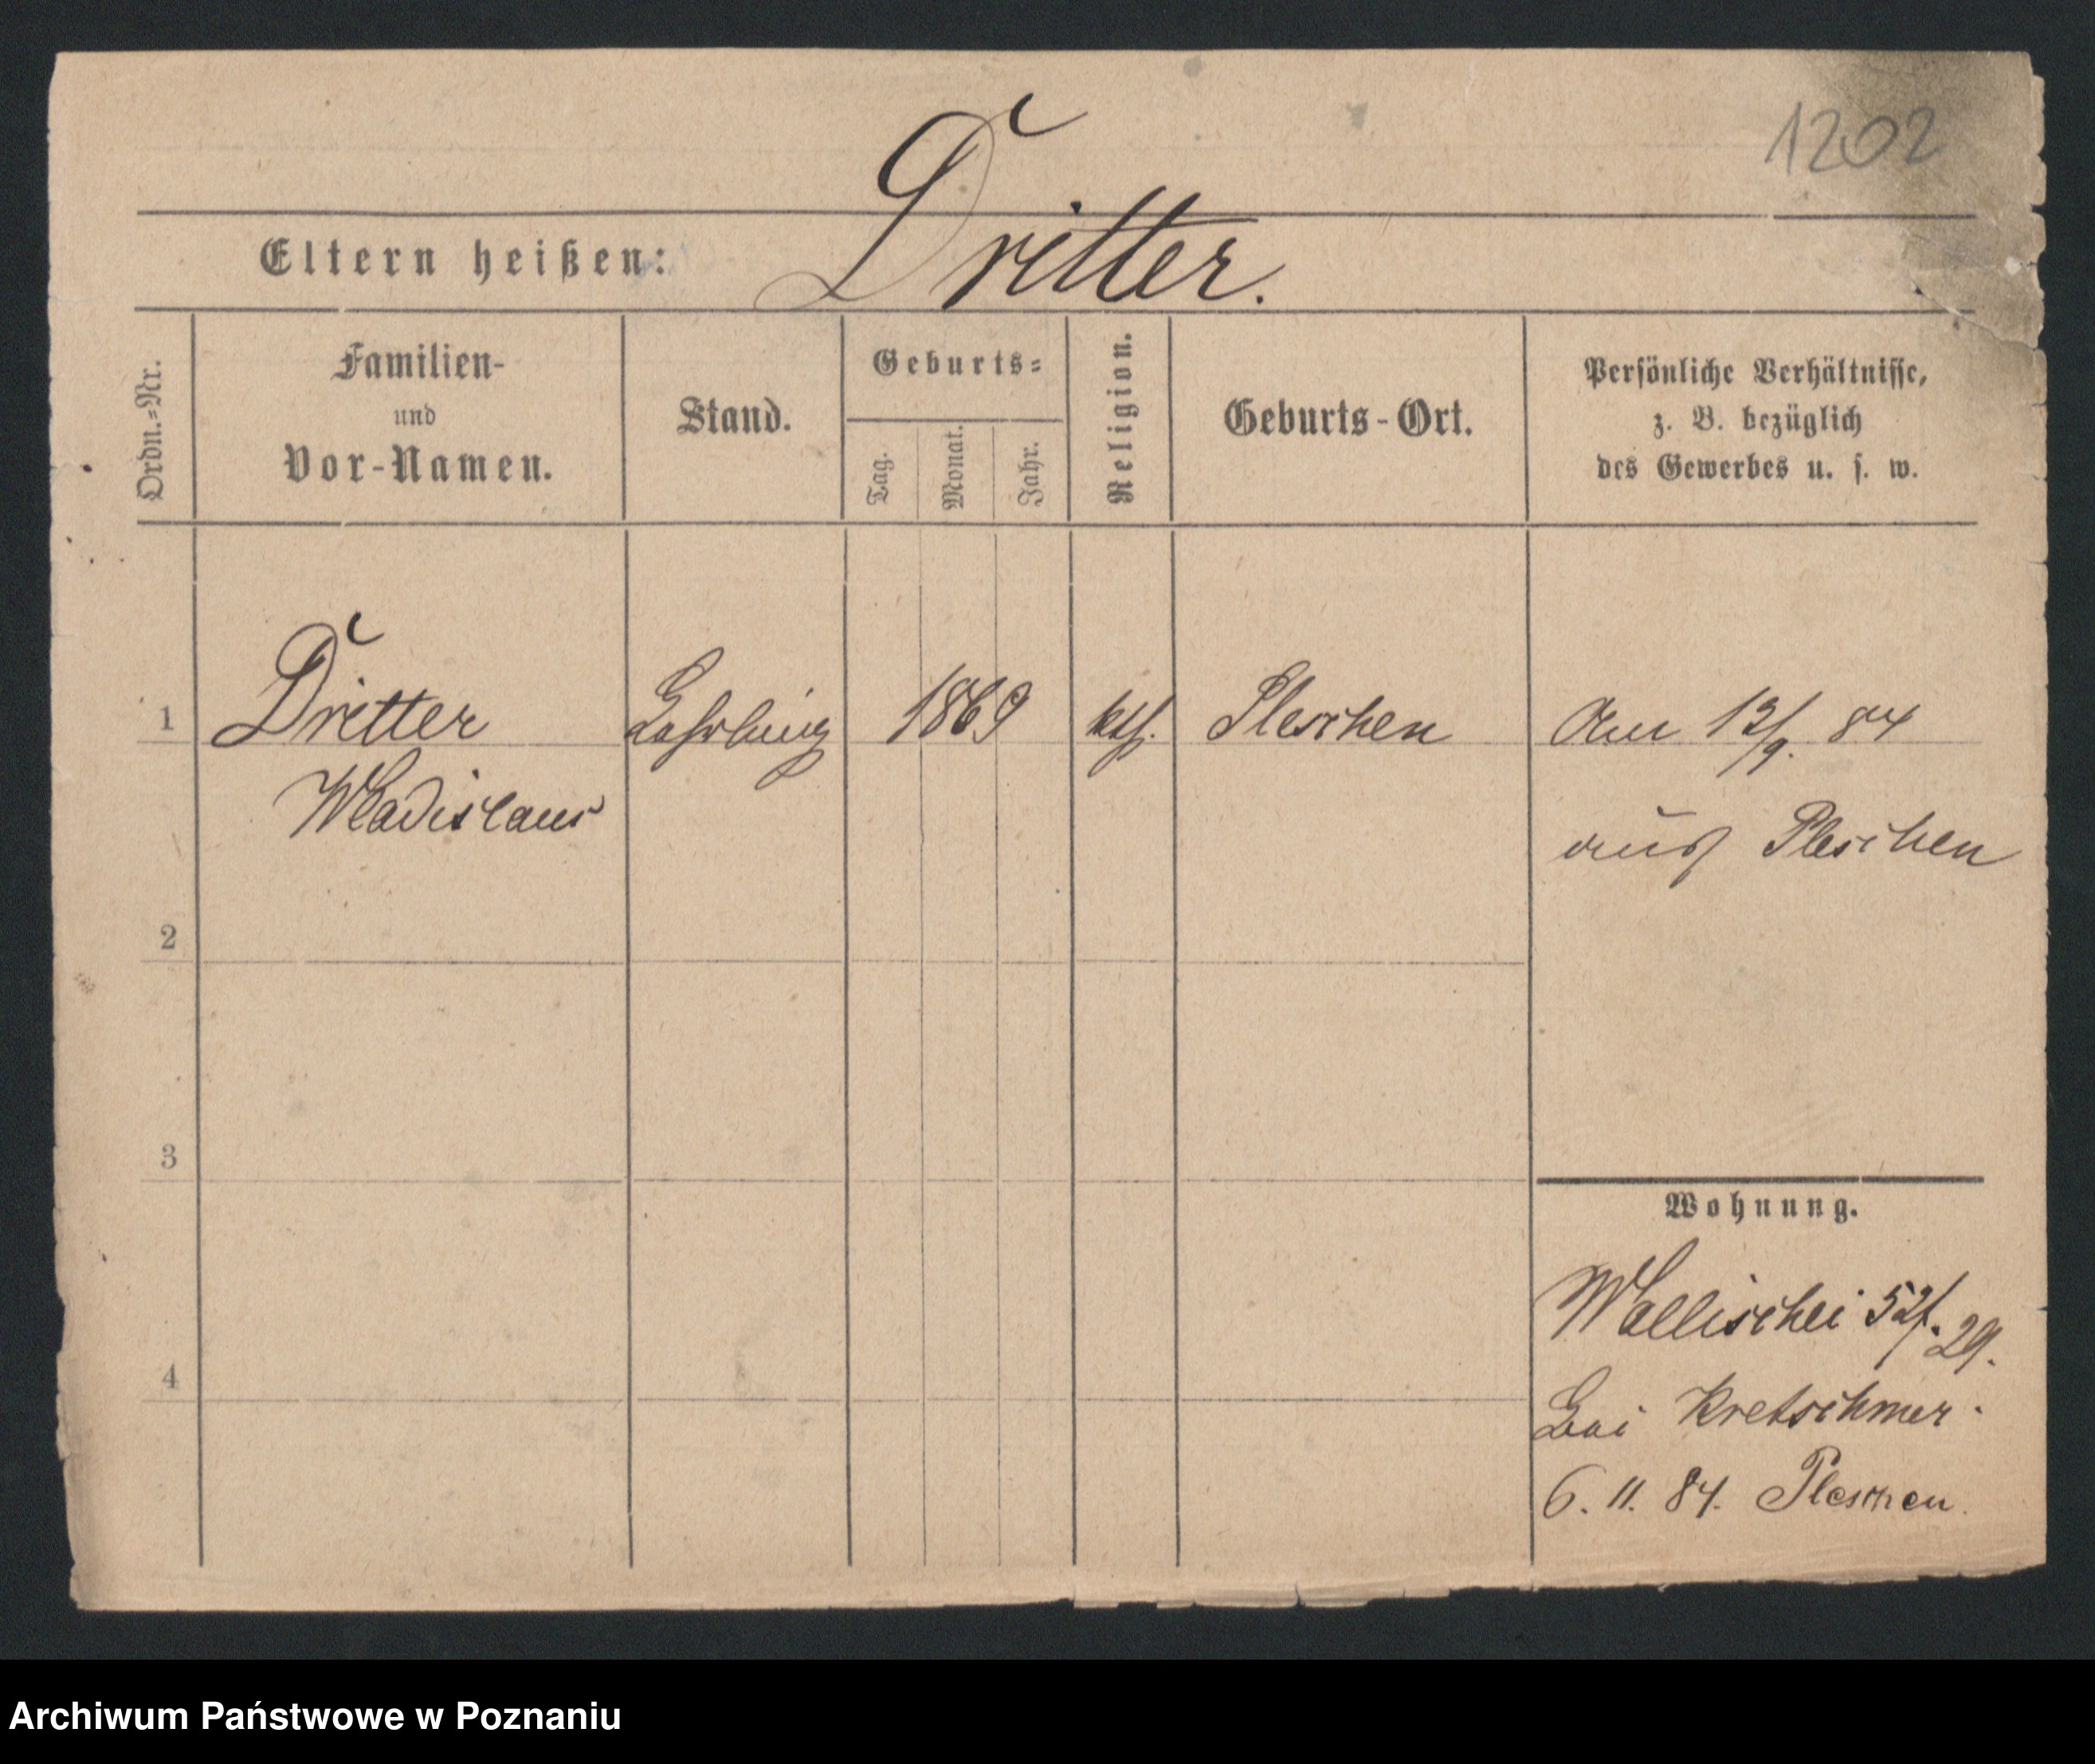 1202
Dritter.
Eltern heißen:
Ordn.=Nr.
Familien-
und
Vor-Namen.
Stand.
Geburts=
Tag.
Monat.
Jahr.
Religion.
Geburts-Ort.
Persönliche Verhältnisse,
z. B. bezüglich
des Gewerbes u. s. w.
1 Dritter Lehrling 1869 kth. Pleschen Am 12/9. 84
Wladislaus
aus Pleschen
2
3
Wohnung.
Wallischei 52/. 29.
4
bei Kretschmer.
6. 11. 84. Pleschen.
Archiwum Państwowe w Poznaniu